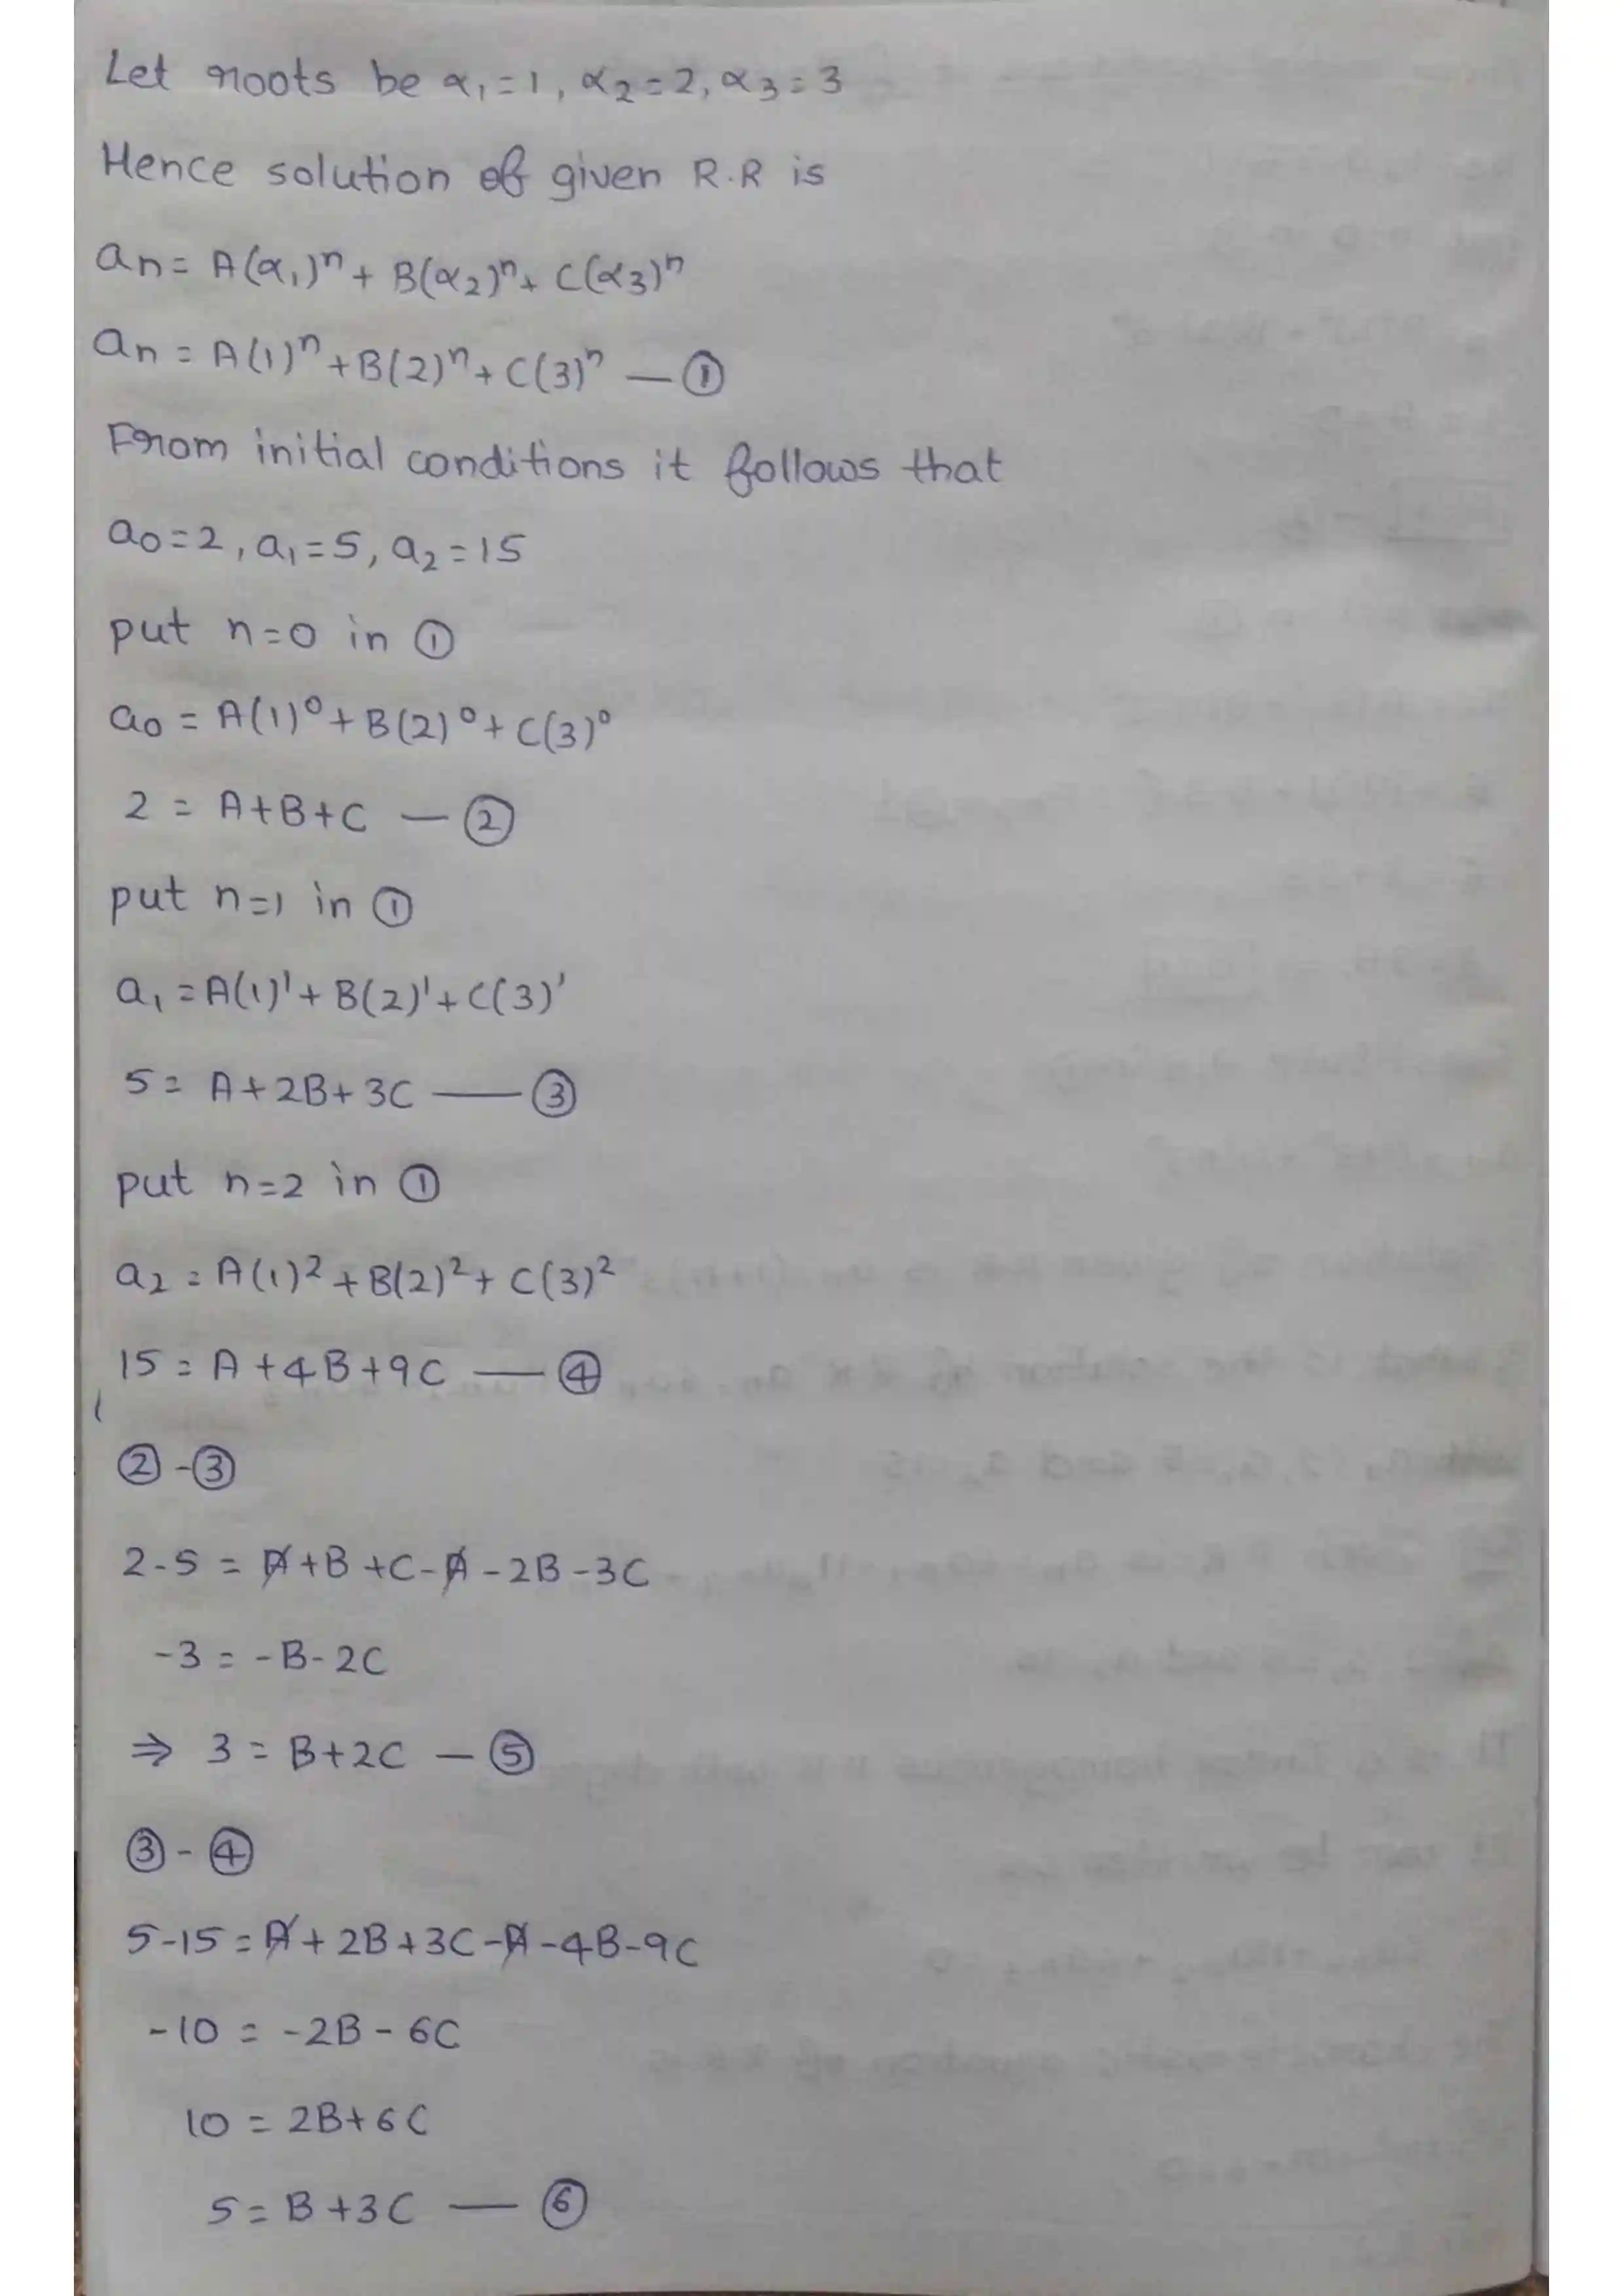 Let roots be α₁=1, α₂=2, α₃=3
Hence solution of given R.R is
an = A(α₁)ⁿ + B(α₂)ⁿ + C(α₃)ⁿ
an = A(1)ⁿ + B(2)ⁿ + C(3)ⁿ — ①
From initial conditions it follows that
a₀=2, a₁=5, a₂=15
put n=0 in ①
a₀ = A(1)⁰ + B(2)⁰ + C(3)⁰
2 = A+B+C — ②
put n=1 in ①
a₁ = A(1)¹ + B(2)¹ + C(3)¹
5 = A+2B+3C — ③
put n=2 in ①
a₂ = A(1)² + B(2)² + C(3)²
15 = A+4B+9C — ④
② - ③
2-5 = A+B+C-A-2B-3C
-3 = -B-2C
⇒ 3 = B+2C — ⑤
③ - ④
5-15 = A+2B+3C-A-4B-9C
-10 = -2B-6C
10 = 2B+6C
5 = B+3C — ⑥